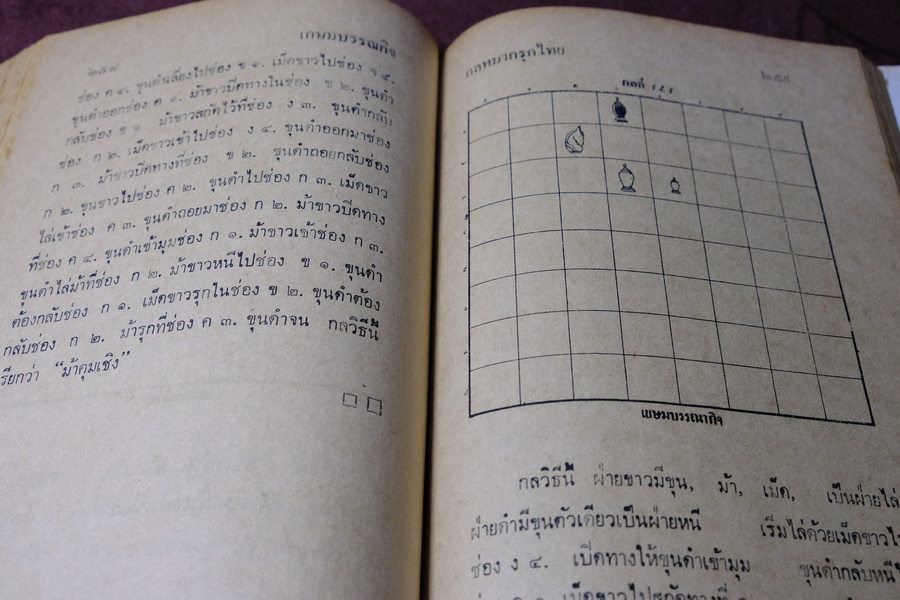 เกษมบรรณกิจ
๒๕๔
ช่อง ค ๔. ขุนดำเลี่ยงไปช่อง ข ๑. เม็ดขาวไปช่อง
ขุนดำออกช่อง ค ๑. ม้าขาวปิดทางในช่อง ข ๒. ขุนดำ
กลับช่อง ข ๑ ม้าขาวสกัดไว้ที่ช่อง ง ๓. ขุนดำกลับ
ช่อง ก ๒. เม็ดขาวเข้าไปช่อง ง ๔. ขุนดำออกมาช่อง
ก ๓. ม้าขาวปิดทางที่ช่อง ข ๒. ขุนดำถอยกลับช่อง
ก ๒. ขุนขาวไปช่อง ค ๒. ขุนดำไปช่อง ก ๓. เม็ดขาว
ไล่เข้าช่อง ค ๓. ขุนดำถอยมาช่อง ก ๒. ม้าขาวปิดทาง
ที่ช่อง ค ๔. ขุนดำเข้ามุมช่อง ก ๑. ม้าขาวเข้าช่อง ก ๓.
ขุนดำไล่ม้าที่ช่อง ก ๒. ม้าขาวหนีไปช่อง ข ๑. ขุนดำ
ต้องกลับช่อง ก ๑. เม็ดขาวรุกในช่อง ข ๒. ขุนดำต้อง
กลับช่อง ก ๒. ม้ารุกที่ช่อง ค ๓. ขุนดำจน กลวิธีนี้
เรียกว่า “ม้าคุมเชิง”
กลหมากรุกไทย
๒๕๕
กลที่ ๑๒๑
เกษมบรรณกิจ
กลวิธีนี้ ฝ่ายขาวมีขุน, ม้า, เม็ด, เป็นฝ่ายไล่
ฝ่ายดำมีขุนตัวเดียวเป็นฝ่ายหนี เริ่มไล่ด้วยเม็ดขาว
ช่อง ง ๔. เปิดทางให้ขุนดำเข้ามุม ขุนดำกลับหนี
เม็ดขาวไปสกัดทางที่